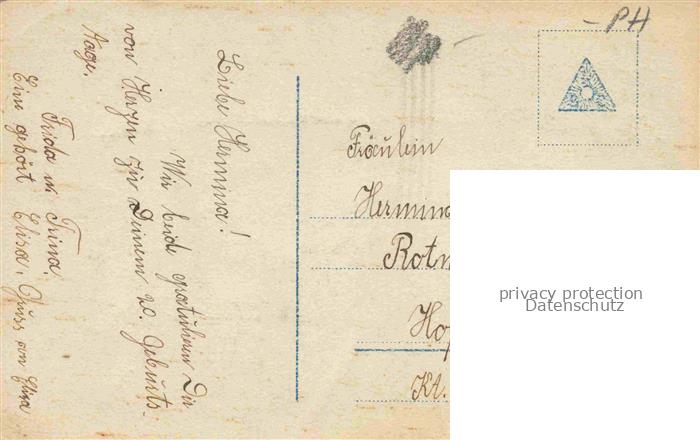 Liebe Hermina!
Wir beide gratulieren Dir
von Herzen zu Deinem 20. Geburts-
tage.
Frida u. Trina.
Eine gehört Elisa. Gruss an Elisa
-PH
Fräulein
Hermina
Rotm
Hof
Kt.
privacy protection
Datenschutz